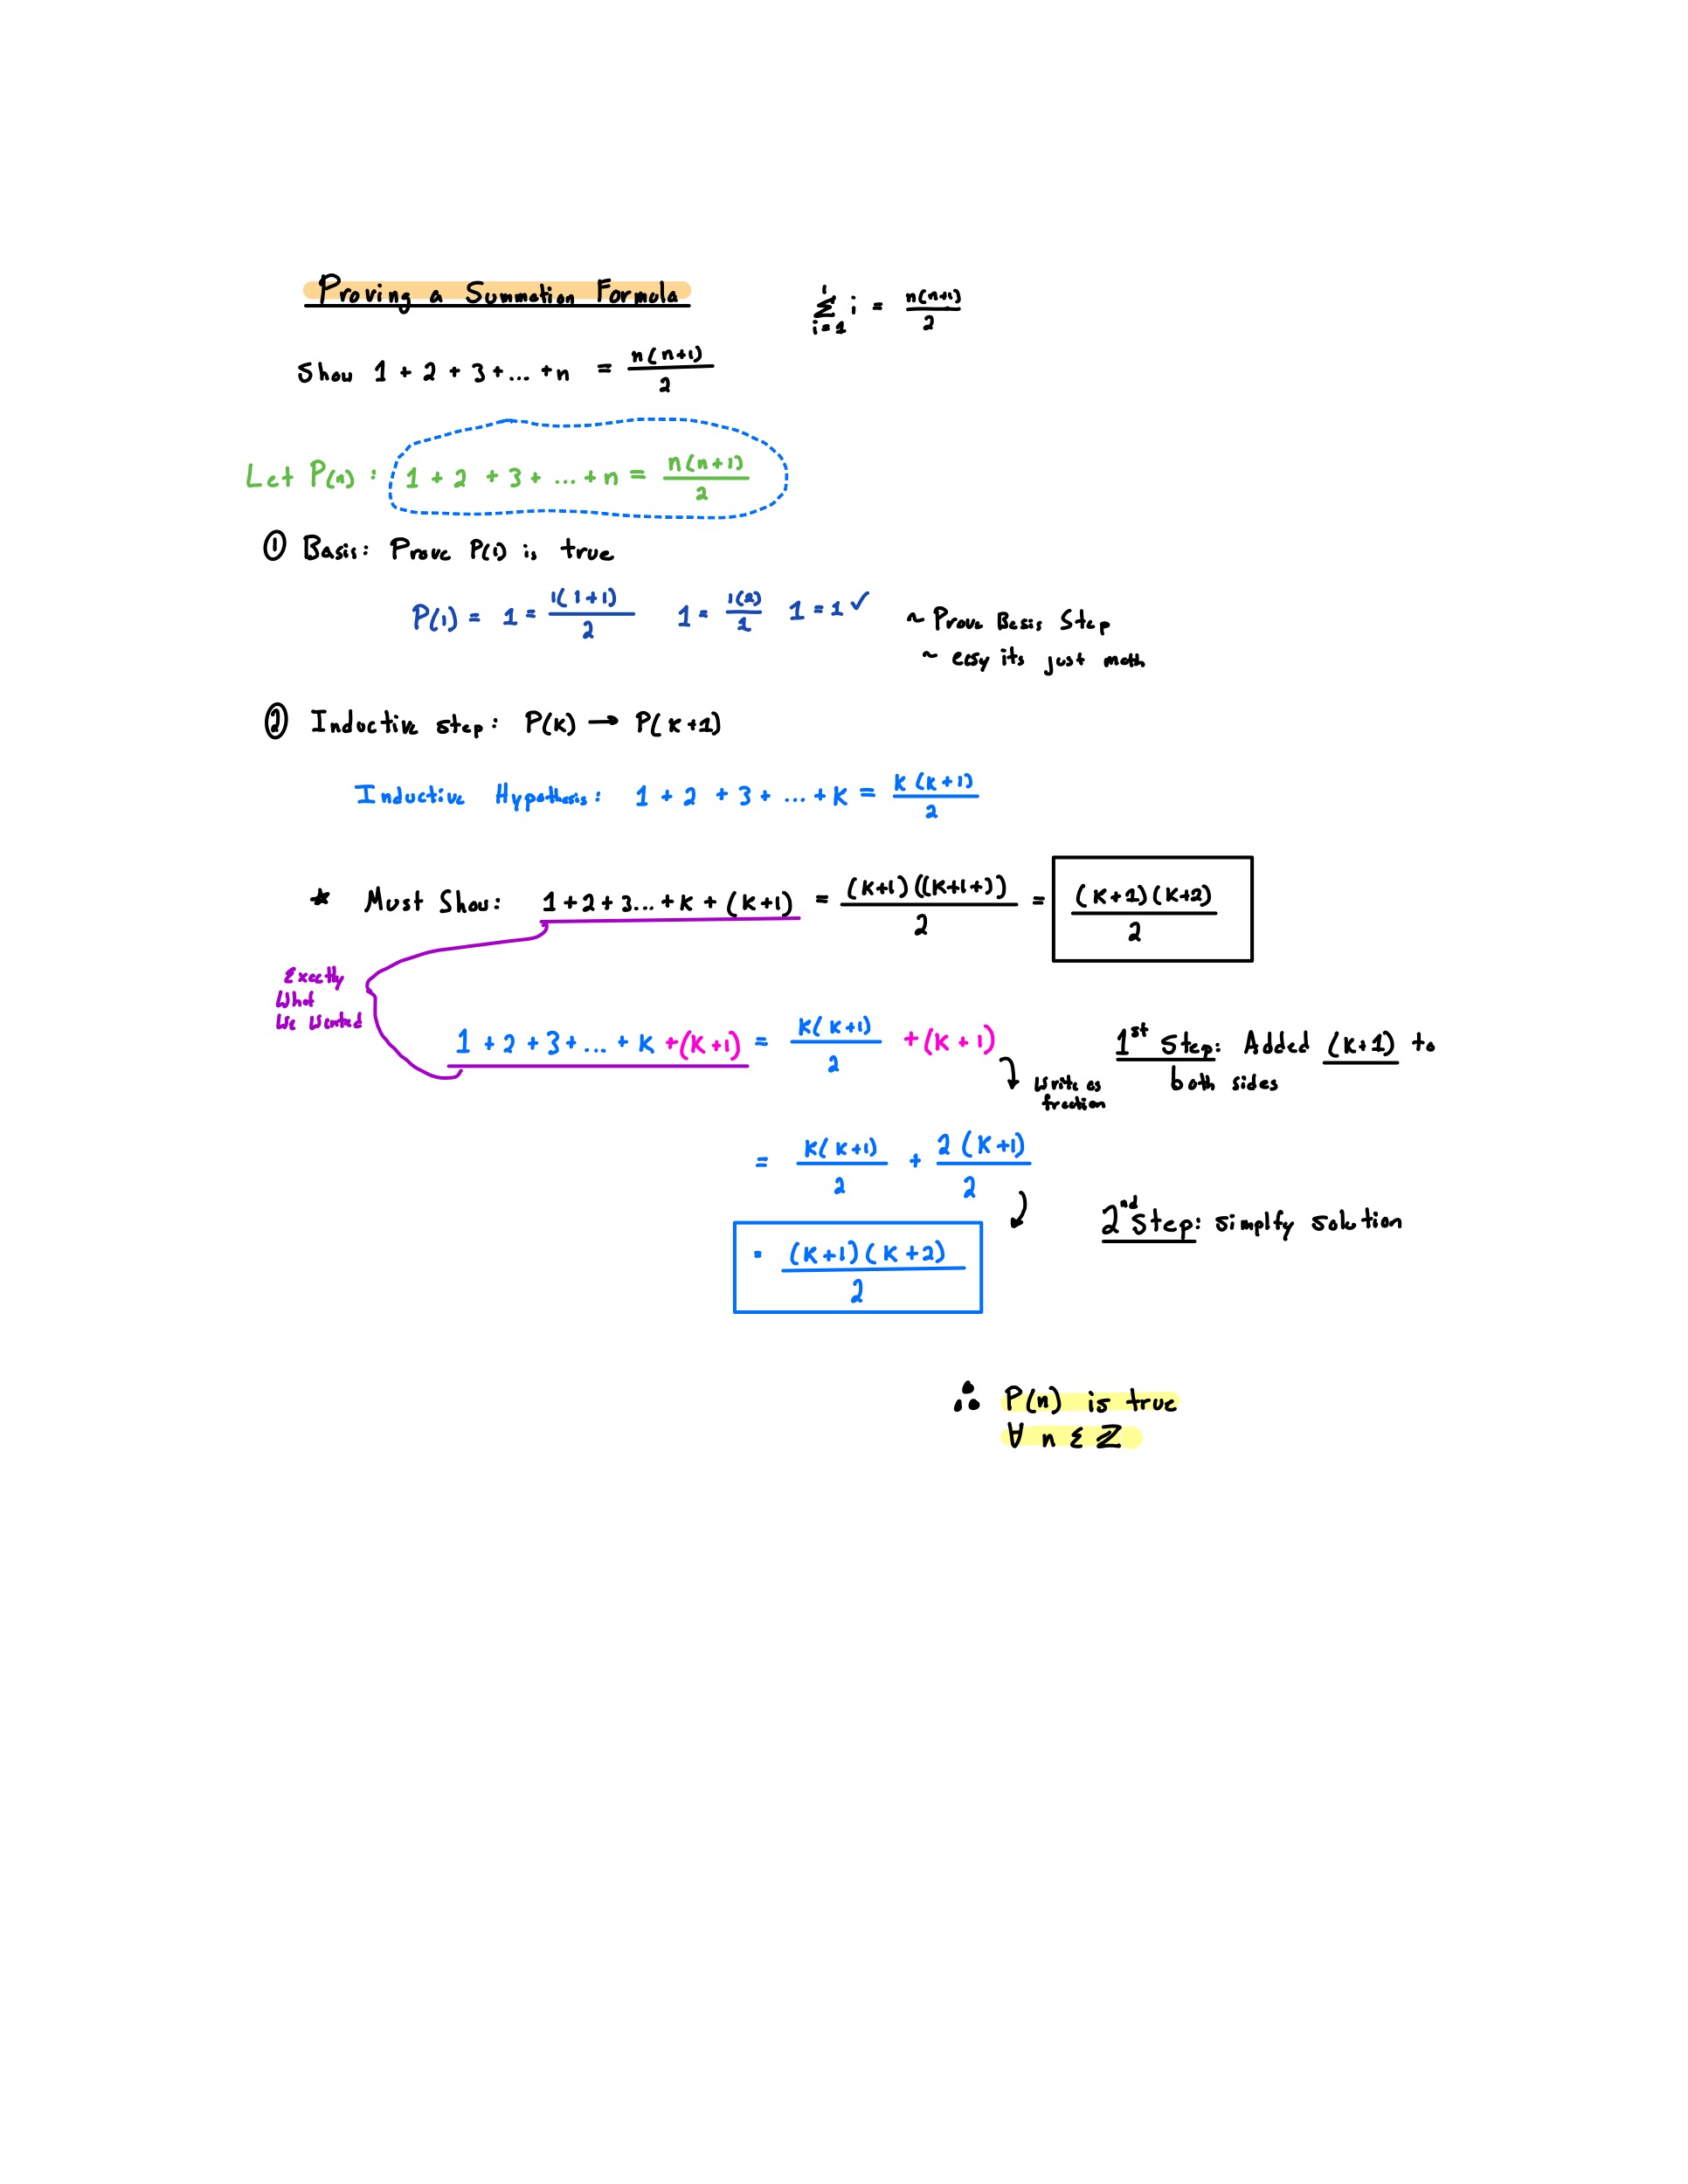 Proving a Summation Formula
1
Σ i = n(n+1)/2
i=1
Show 1 + 2 + 3 + ... + n = n(n+1)/2
Let P(n) : 1 + 2 + 3 + ... + n = n(n+1)/2
① Basis: Prove P(1) is true
P(1) = 1 = 1(1+1)/2 1 = 1(2)/2 1 = 1 ✓
~ Prove Basis Step
~ easy its just math
② Inductive step: P(K) → P(K+1)
Inductive Hypothesis: 1 + 2 + 3 + ... + K = K(K+1)/2
* Must Show: 1 + 2 + 3 ... + K + (K+1) = (K+1)((K+1+))/2 = (K+1)(K+2)/2
Exactly
What
We Wanted
1 + 2 + 3 + ... + K + (K+1) = K(K+1)/2 + (K+1)
1st Step: Added (K+1) to
both sides
Write as
fraction
= K(K+1)/2 + 2(K+1)/2
2nd Step: simplfy solution
= (K+1)(K+2)/2
∴ P(n) is true
∀ n ε ℤ